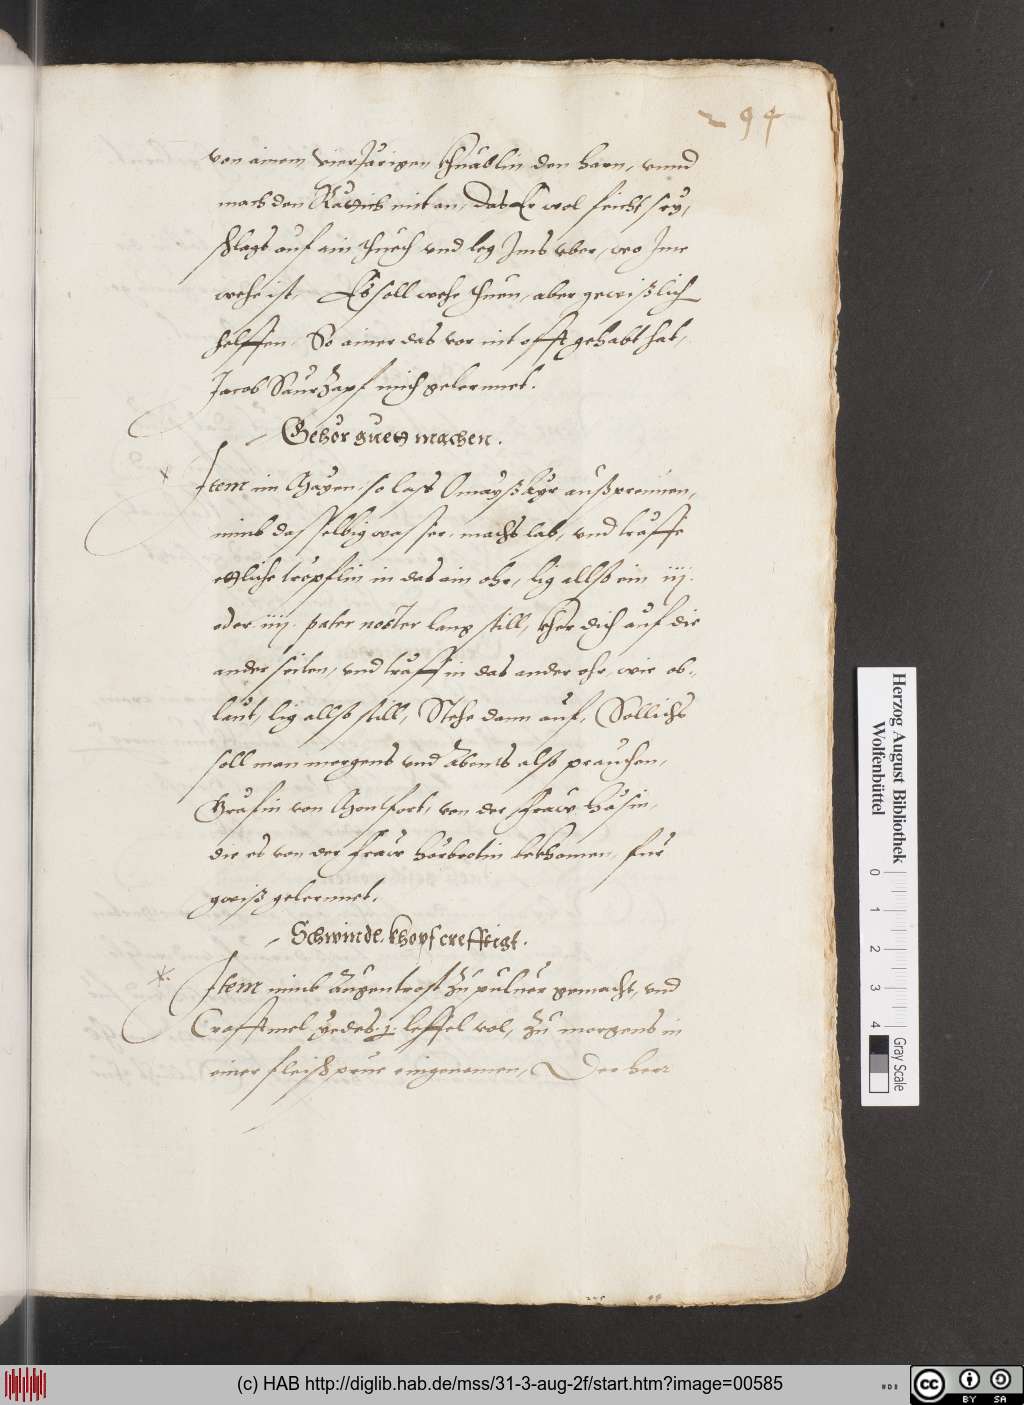 294
von ainem vierJärigen khnäblin den harn, vnnd
mach den Rättich mit an, das Er wol feicht sey,
schlags auf ain thuech vnd leg Ims vber, wo Ime
wehe ist, Es soll wehe thuen, aber gewißlich
helffen. So ainer das vor nit offt gehabt hat,
Jacob Saurzapf mich gelernnet.
Gehör guett machen.
Item im Mayen so lass Omayß Ayr außprennen,
nimb dasselbig wasser, machs lab, vnd träuffe
ettliche tröpflin in das ein ohr, lig allß ein iij.
oder iiij. pater noster lang still, kher dich auf die
ander seiten, vnd träuff in das ander ohr, wie ob..
laut, lig allß still, Stehe dann auf, Sollichs
soll man morgens vnd Abents alß prauchen,
Gräfin von Montfort, von der Fraw Häsin,
die es von der Fraw Hörbrotin bekhomen, für
gwiß gelernnet.
Schwindl. khopf crefftigt.
Item nimb Augentrost zu puluer gemacht, vnd
Crafftmel yedes .j. leffel vol, zu morgens in
einer fleischprue eingenomen, Der herr
Herzog August Bibliothek
Wolfenbüttel
0 1 2 3 4
Gray Scale
(c) HAB http://diglib.hab.de/mss/31-3-aug-2f/start.htm?image=00585
cc BY SA